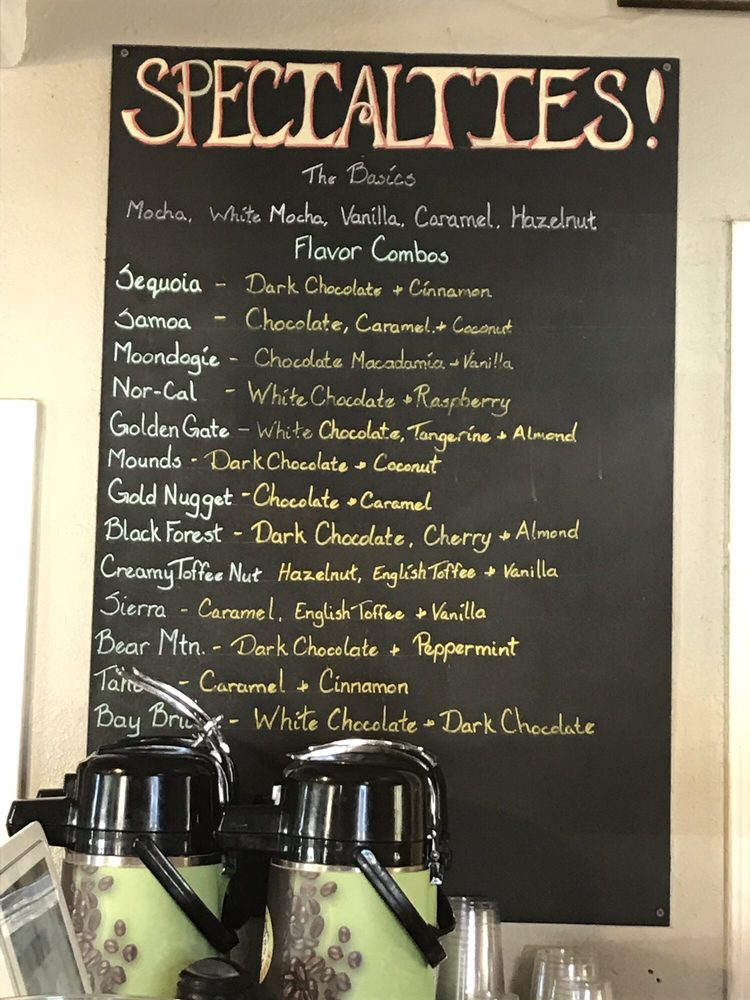 SPECIALTIES!
The Basics
Mocha, White Mocha, Vanilla, Caramel, Hazelnut
Flavor Combos
Sequoia - Dark Chocolate + Cinnamon
Samoa - Chocolate, Caramel + Coconut
Moondogie - Chocolate Macadamia + Vanilla
Nor-Cal - White Chocolate + Raspberry
Golden Gate - White Chocolate, Tangerine + Almond
Mounds - Dark Chocolate + Coconut
Gold Nugget - Chocolate + Caramel
Black Forest - Dark Chocolate, Cherry + Almond
Creamy Toffee Nut Hazelnut, English Toffee + Vanilla
Sierra - Caramel, English Toffee + Vanilla
Bear Mtn. - Dark Chocolate + Peppermint
- Caramel + Cinnamon
Bay - White Chocolate + Dark Chocolate